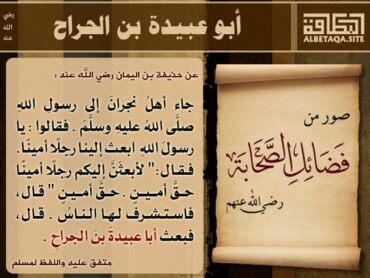 البطاقة
ALBETAQA.SITE
أبو عبيدة بن الجراح
رضي
الله
عنه
صور من
فضائل الصحابة
رضي الله عنهم
عن حذيفة بن اليمان رضي اللَّه عنه :
جاء أهلُ نجرانَ إلى رسولِ اللهِ
صلَّى اللهُ عليهِ وسلَّمَ . فقالوا : يا
رسولَ اللهِ ابعث إلينا رجلًا أمينًا.
فقال :" لأبعثَنَّ إليكم رجلًا أمينًا
حقَّ أمينٍ . حقَّ أمينٍ " قال،
فاستشرف لها الناسُ . قال،
فبعث أبا عبيدةَ بنَ الجراحِ .
متفق عليه واللفظ لمسلم